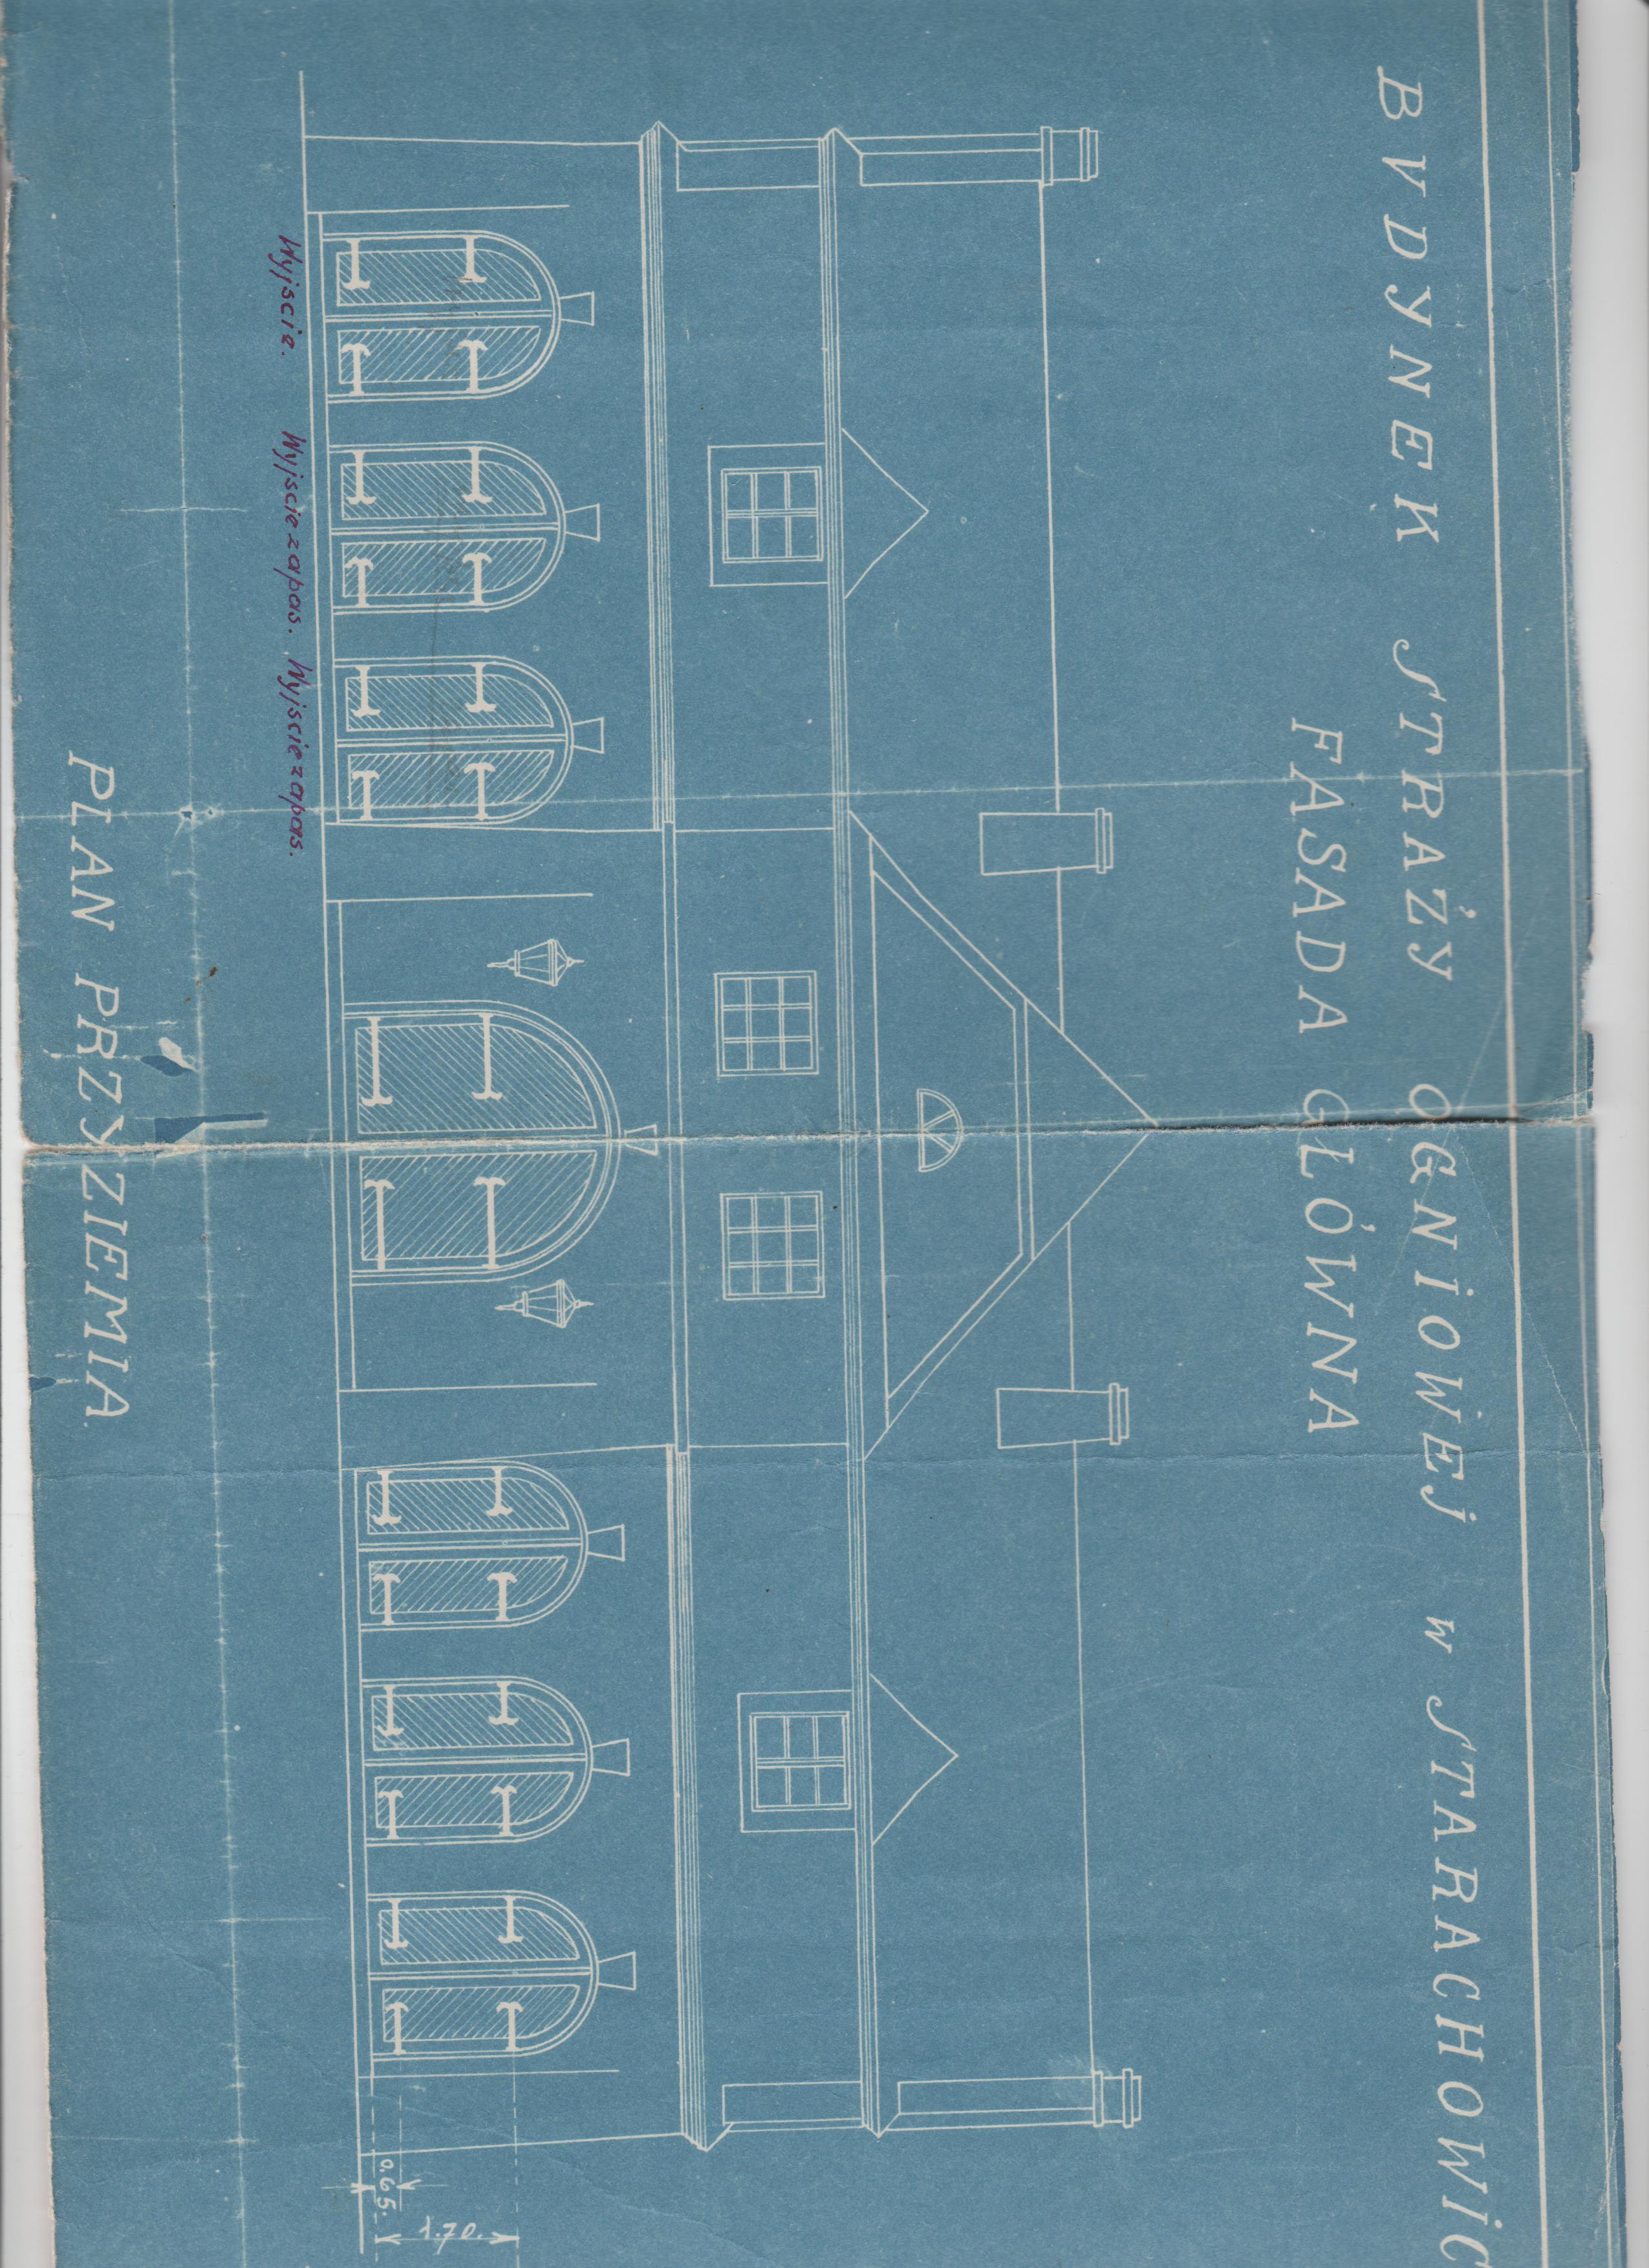 BVDYNEK STRAŻY OGNIOWEJ w STARACHOWIC
FASADA GŁÓWNA
0.65.
1.70.
Wyjscie. Wyjscie zapas. Wyjscie zapas.
PLAN PRZYZIEMIA.